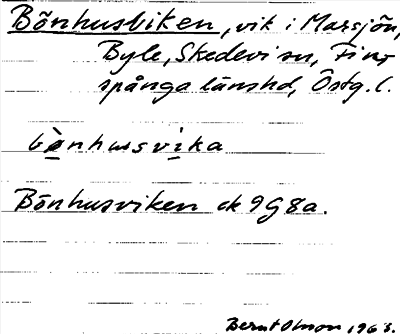 Bönhusviken, vik i Marsjön,
Byle, Skedevi sn, Fin-
spånga länshd, Östg. l.
bö̀nhusvika
Bönhusviken ek 9G8a.
Bernt Olsson 1963.